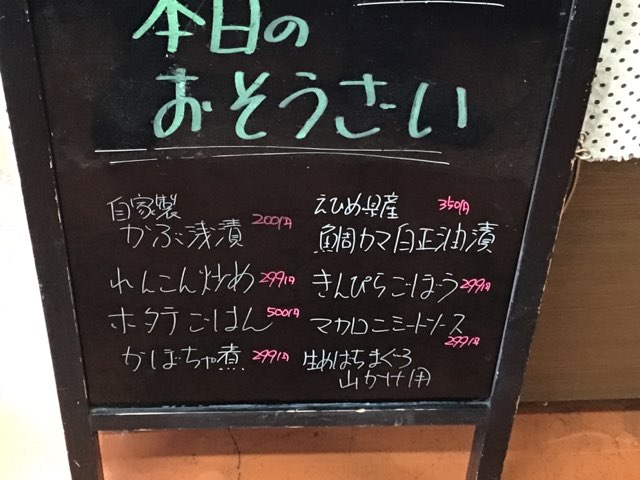 本日の
おそうざい
自家製
かぶ浅漬 200円
れんこん炒め 299円
ホタテごはん 500円
かぼちゃ煮 299円
えひめ県産 350円
鯛カマ白正油漬
きんぴらごぼう 299円
マカロニミートソース
299円
生めばちまぐろ
山かけ用